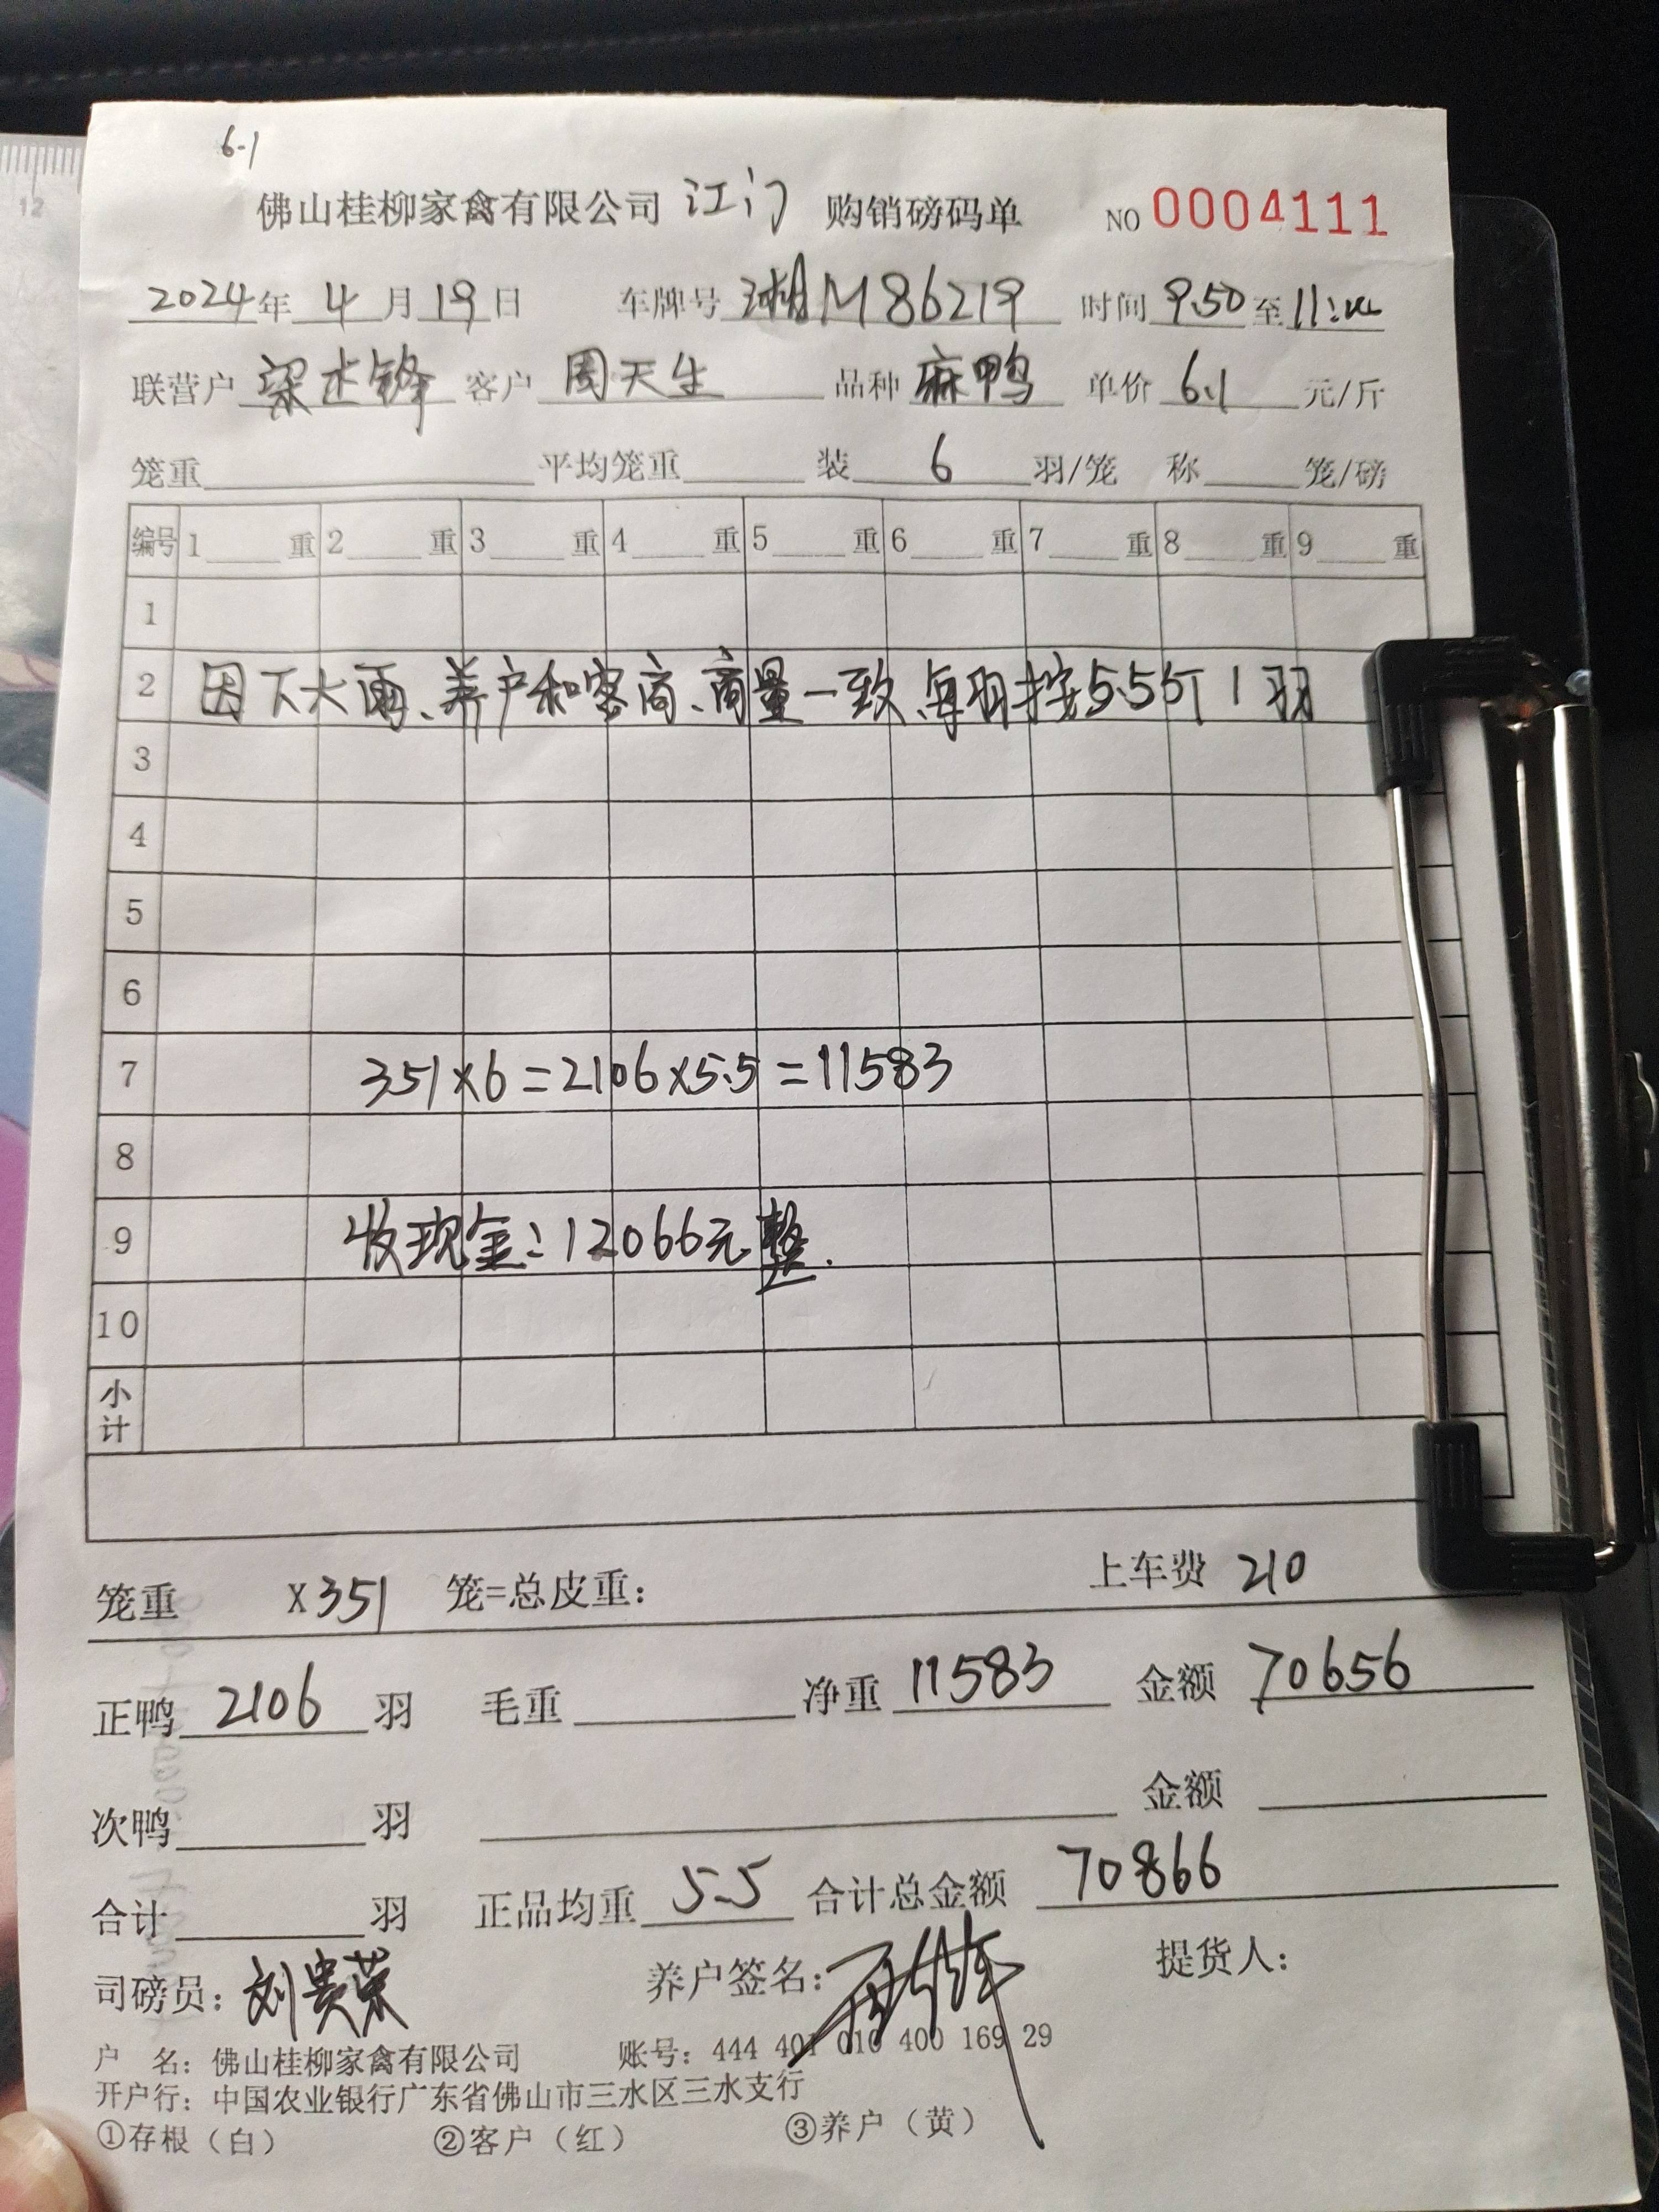 6.1
佛山桂柳家禽有限公司 江门 购销磅码单 NO 0004111
2024年 4 月 19 日 车牌号 湘M86219 时间 9.50 至 11:
联营户 梁 锋 客户 周天生 品种 麻鸭 单价 6.1 元/斤
笼重 平均笼重 装 6 羽/笼 称 笼/磅
编号 1 重 2 重 3 重 4 重 5 重 6 重 7 重 8 重 9 重
1
2 因下大雨、养户和客商、商量一致、每羽按5.5斤1羽
3
4
5
6
7 351×6=2106×5.5=11583
8
9 收现金:12066元整.
10
小计
笼重 X351 笼=总皮重: 上车费 210
正鸭 2106 羽 毛重 净重 11583 金额 70656
次鸭 羽 金额
合计 羽 正品均重 5.5 合计总金额 70866
司磅员: 刘贵荣 养户签名: 提货人:
户 名: 佛山桂柳家禽有限公司 账号: 444 401 010 400 169 29
开户行: 中国农业银行广东省佛山市三水区三水支行
①存根(白) ②客户(红) ③养户(黄)
12